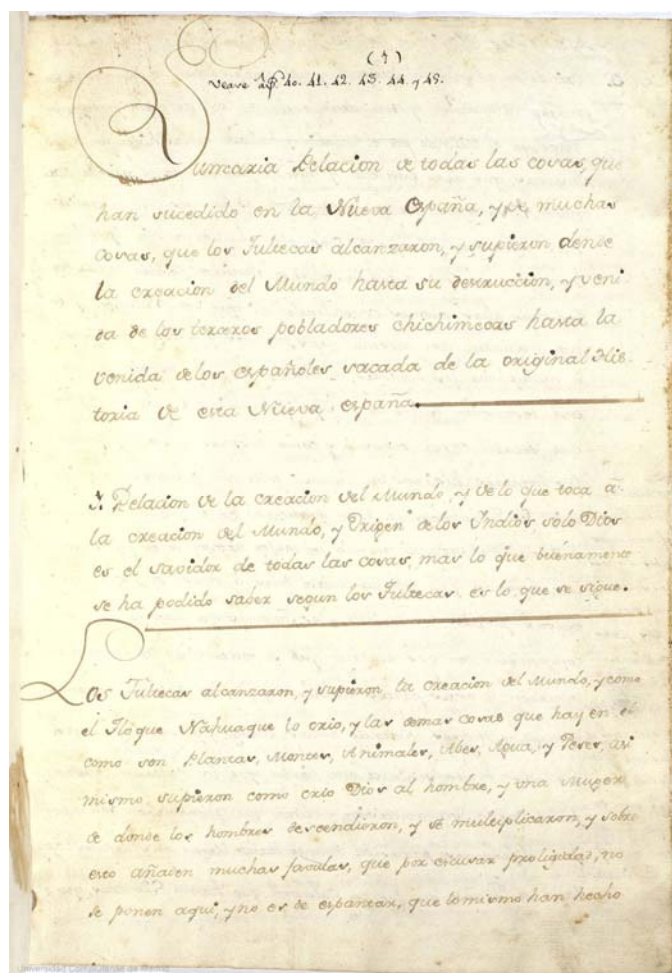 (1)
Vease fs. 40. 41. 42. 43. 44. y 45.
Sumaria Relacion de todas las cosas, que
han sucedido en la Nueva España, y de muchas
cosas, que los Tultecas alcanzaron, y supieron desde
la creacion del Mundo hasta su destruccion, y veni
da de los terceros pobladores chichimecas hasta la
venida de los españoles sacada de la original His-
toria de esta Nueva españa.
Relacion de la creacion del Mundo, y de lo que toca á
la creacion del Mundo, y Origen de los Yndios, solo Dios
es el savidor de todas las cosas, mas lo que buenamente
se ha podido saber segun los Tultecas es lo que se sigue.
Los Tultecas alcanzaron, y supieron, la creacion del Mundo, y como
el Tloque Nahuaque lo crio, y las demas cosas que hay en el
como son Plantas, Montes, Animales, Abes, Agua, y Peses, asi
mismo supieron como crio Dios al hombre, y una Muger
de donde los hombres descendieron, y se multiplicaron, y sobre
esto añaden muchas fabulas, que por escusar proligidad, no
se ponen aqui, y no es de espantar, que lo mismo han hecho
Universidad Complutense de Madrid